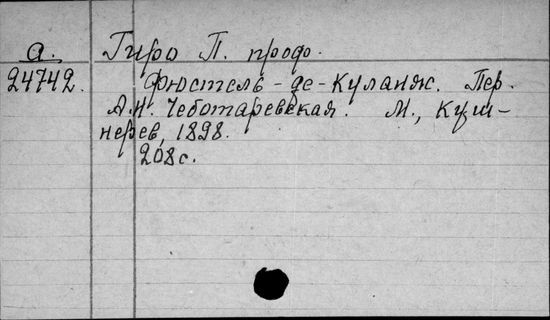 А. Гиро П. проф.
24742. Фюстель-де-Куланж. Пер.
А.Н. Чеботаревская. М., Куш-
нерев, 1898.
208 с.